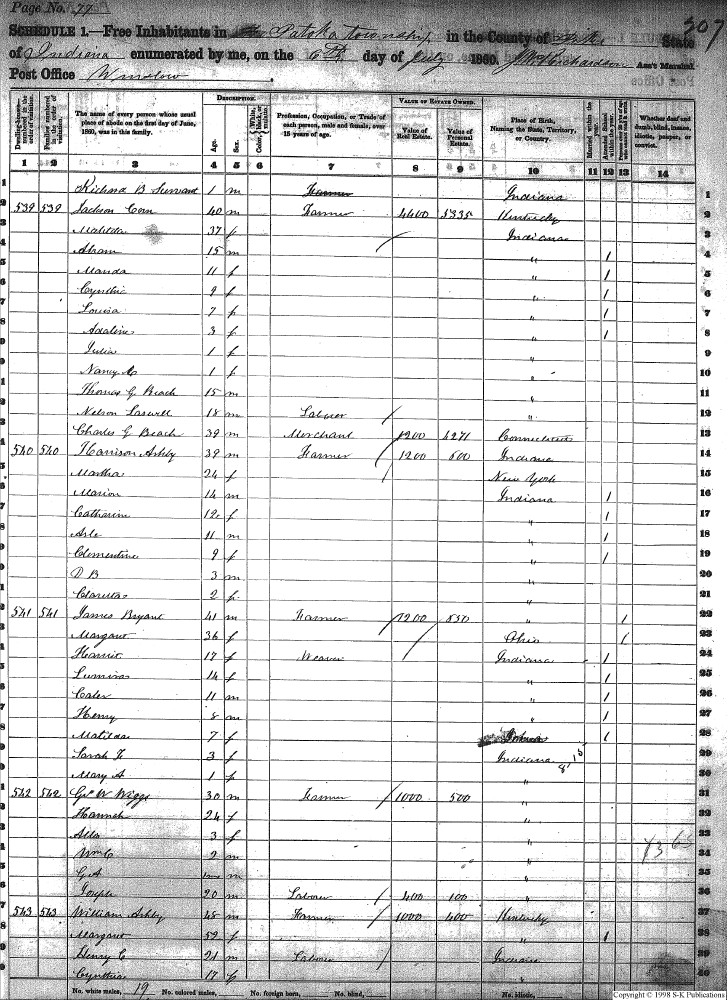 Page No. 77
307
SCHEDULE 1.—Free Inhabitants in Patoka township in the County of Pike State
of Indiana enumerated by me, on the 6th day of July 1860. Richardson Ass't Marshal.
Post Office Winslow
Dwelling-houses numbered in the order of visitation.
Families numbered in the order of visitation.
The name of every person whose usual place of abode on the first day of June, 1860, was in this family.
DESCRIPTION.
Age.
Sex.
Color, White, black, or mulatto.
Profession, Occupation, or Trade of each person, male and female, over 15 years of age.
VALUE OF ESTATE OWNED.
Value of Real Estate.
Value of Personal Estate.
Place of Birth, Naming the State, Territory, or Country.
Married within the year.
Attended School within the year.
Whether deaf and dumb, blind, insane, idiotic, pauper, or convict.
1 2 3 4 5 6 7 8 9 10 11 12 13 14
1 Richard B Servant 1 m Farmer Indiana 1
2 539 539 Jackson Corn 40 m Farmer 4400 5335 Kentucky 2
3 Matilda 37 f / Indiana 3
4 Abram 15 m / " / 4
5 Manda 11 f " / 5
6 Cynthia 9 f " / 6
7 Louisa 7 f " / 7
8 Adaline 3 f " / 8
9 Julia 1 f " 9
Nancy A 1 f " 10
Thomas G Beach 15 m " 11
Nelson Laswell 18 m Laborer / " 12
Charles G Beach 39 m Merchant / 1200 4271 Connecticut 13
540 540 Harrison Ashby 39 m Farmer / 1200 600 Indiana 14
Martha 24 f / New York 15
Marion 14 m Indiana / 16
Catharine 12 f " / 17
11 m " / 18
Clementine 9 f " / 19
D B 3 m " 20
2 f " 21
541 541 James Bryant 41 m Farmer / 1200 850 " / 22
Margaret 36 f / Ohio / 23
Harriet 17 f Weaver / Indiana / 24
14 f " / 25
11 m " / 26
Henry 8 m " / 27
Matilda 7 f / 28
Sarah F 3 f Indiana 29
Mary A 1 f " 30
542 542 Geo W Wiggs 30 m Farmer / 1000 500 " 31
Hannah 24 f " 32
3 f " 33
Wm C 2 m " 34
G A m " 35
Joseph 20 m Laborer / 400 100 " 36
543 543 William Ashby 48 m Farmer / 1000 400 Kentucky 37
Margaret 52 f " / 38
Henry C 21 m Laborer / Indiana 39
Cynthia 17 f " 40
No. white males, 19 No. colored males, No. foreign born, No. blind, No. idiotic,
Copyright © 1998 S-K Publications